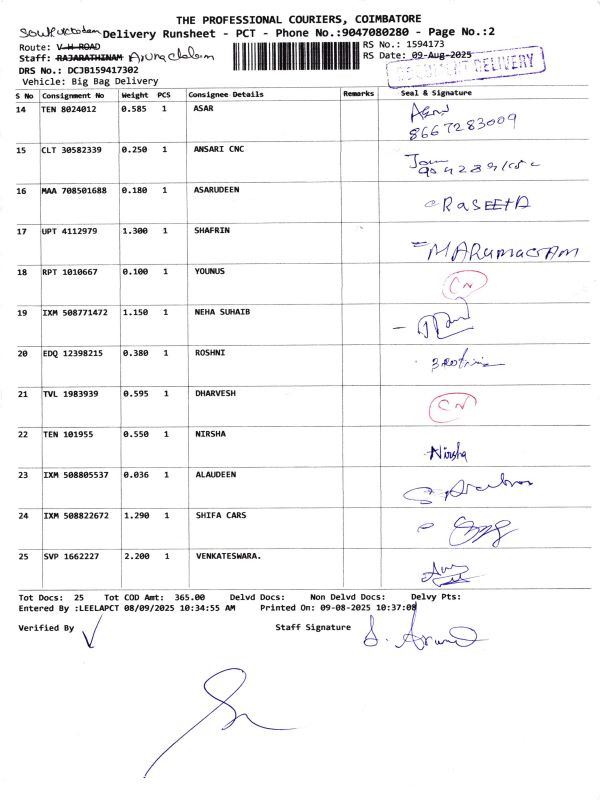 THE PROFESSIONAL COURIERS, COIMBATORE
Delivery Runsheet - PCT - Phone No.:9047080280 - Page No.:2
Route: V H ROAD
RS No.: 1594173
Staff: RAJARATHINAM
RS Date: 09-Aug-2025
DRS No.: DCJB159417302
DELIVERY
Vehicle: Big Bag Delivery
S No Consignment No Weight PCS Consignee Details Remarks Seal & Signature
14 TEN 8024012 0.585 1 ASAR
8667283009
15 CLT 30582339 0.250 1 ANSARI CNC
16 MAA 708501688 0.180 1 ASARUDEEN RASEEDA
17 UPT 4112979 1.300 1 SHAFRIN
18 RPT 1010667 0.100 1 YOUNUS CN
19 IXM 508771472 1.150 1 NEHA SUHAIB
20 EDQ 12398215 0.380 1 ROSHNI
21 TVL 1983939 0.595 1 DHARVESH CN
22 TEN 101955 0.550 1 NIRSHA Nirsha
23 IXM 508805537 0.036 1 ALAUDEEN
24 IXM 508822672 1.290 1 SHIFA CARS
25 SVP 1662227 2.200 1 VENKATESWARA.
Tot Docs: 25 Tot COD Amt: 365.00 Delvd Docs: Non Delvd Docs: Delvy Pts:
Entered By :LEELAPCT 08/09/2025 10:34:55 AM Printed On: 09-08-2025 10:37:08
Verified By Staff Signature